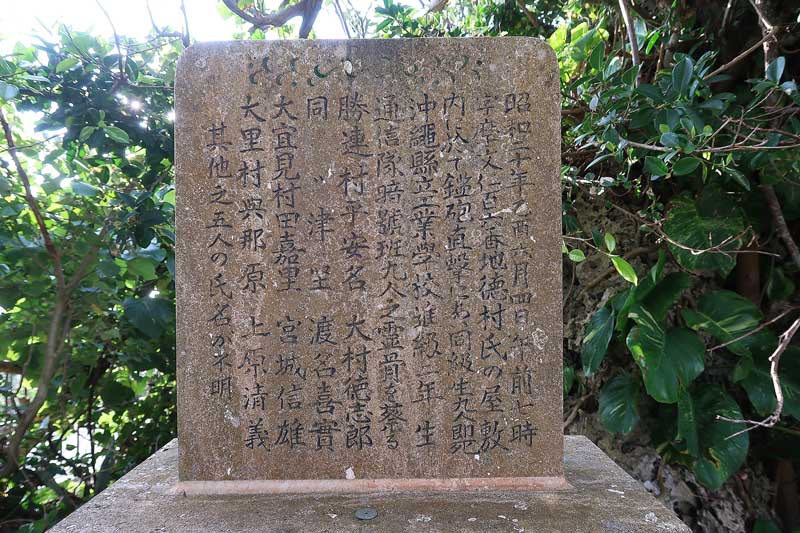 昭和二十年乙酉六月四日午前七時
字摩文仁百六番地徳村氏の屋敷
内に於て艦砲直撃にあひ同級生九人即死
沖縄縣立工業學校准級二年生
通信隊暗號班九人之霊骨を葬る
勝連村平安名 大村徳志郎
同〃津堅 渡名喜實
大宜見村田嘉里 宮城信雄
大里村與那原 上原清義
其他之五人の氏名が不明